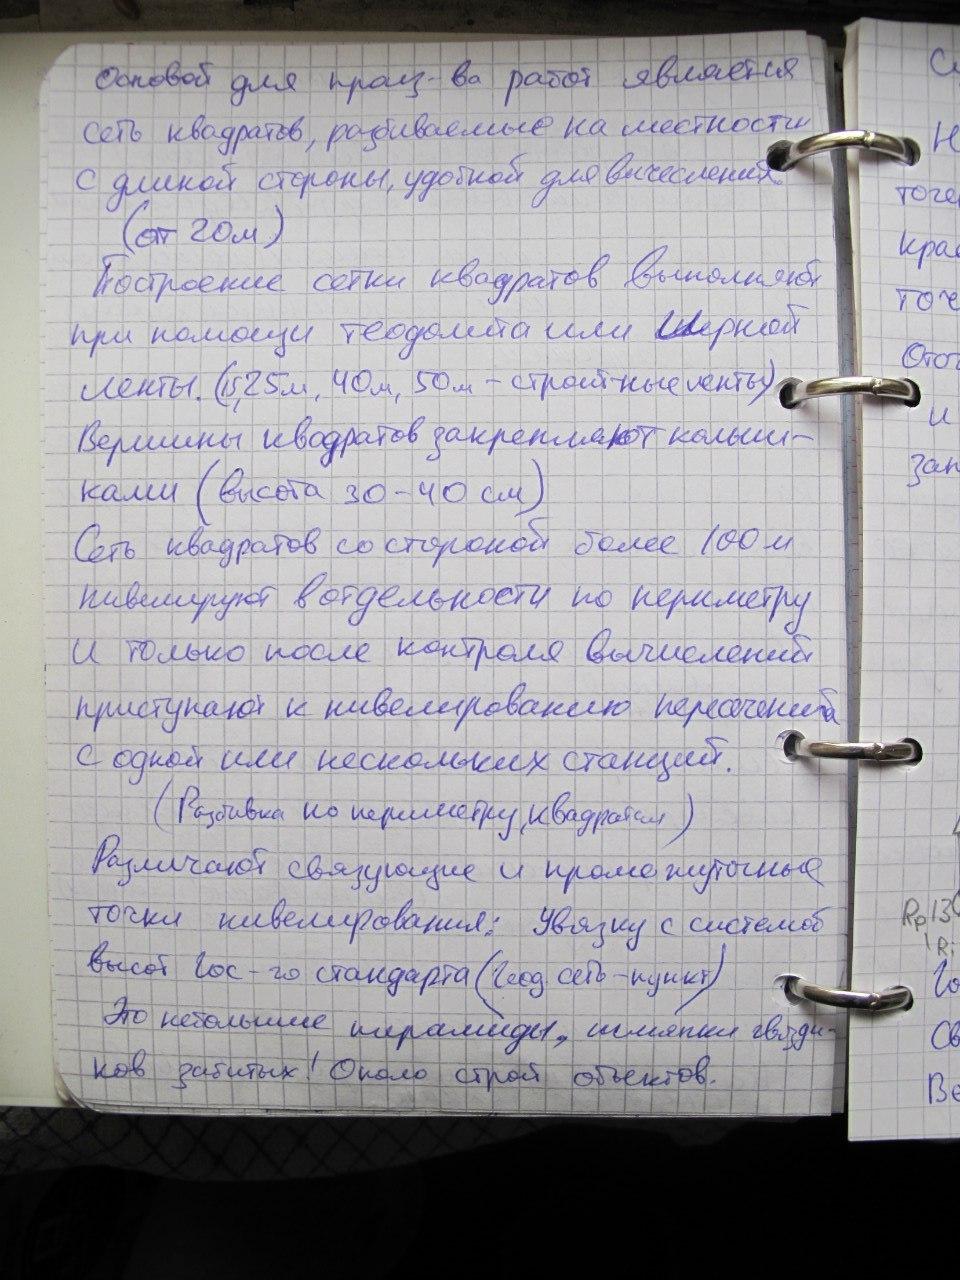 Основой для произ-ва работ является
сеть квадратов, разбиваемые на местности
с длиной стороны, удобной для вычеслений.
(от 20м)
Построение сетки квадратов выполняют
при помощи теодолита или мерной
ленты. (25м, 40м, 50м - строит-ные ленты)
Вершины квадратов закрепляют колыш-
ками (высота 30-40 см)
Сеть квадратов со стороной более 100 м
нивелируют в отдельности по периметру
и только после контроля вычислений
приступают к нивелированию пересечений
с одной или нескольких станций.
(Разбивка по периметру, квадратам)
Различают связующие и промежуточные
точки нивелирования: Увязку с системой
высот Гос-го стандарта (Геод. сеть - пункт)
Это небольшие пирамиды, шляпки гвозди-
ков забитых! Около строй объектов.
Н
точе
крас
точ
Оточ
и
зап
Rp13
Го
Св
Ве